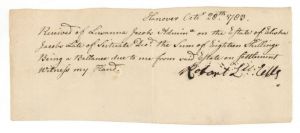 Hanover Octr. 28th. 1783.
Received of Luranna Jacobs Adminx. on the Estate of Elisha
Jacobs Late of Scituate Decd. the Sum of Eighteen Shillings
Being a Ballance due to me from said Estate on Settlement
Witness my Hand.
Robert L. Eells